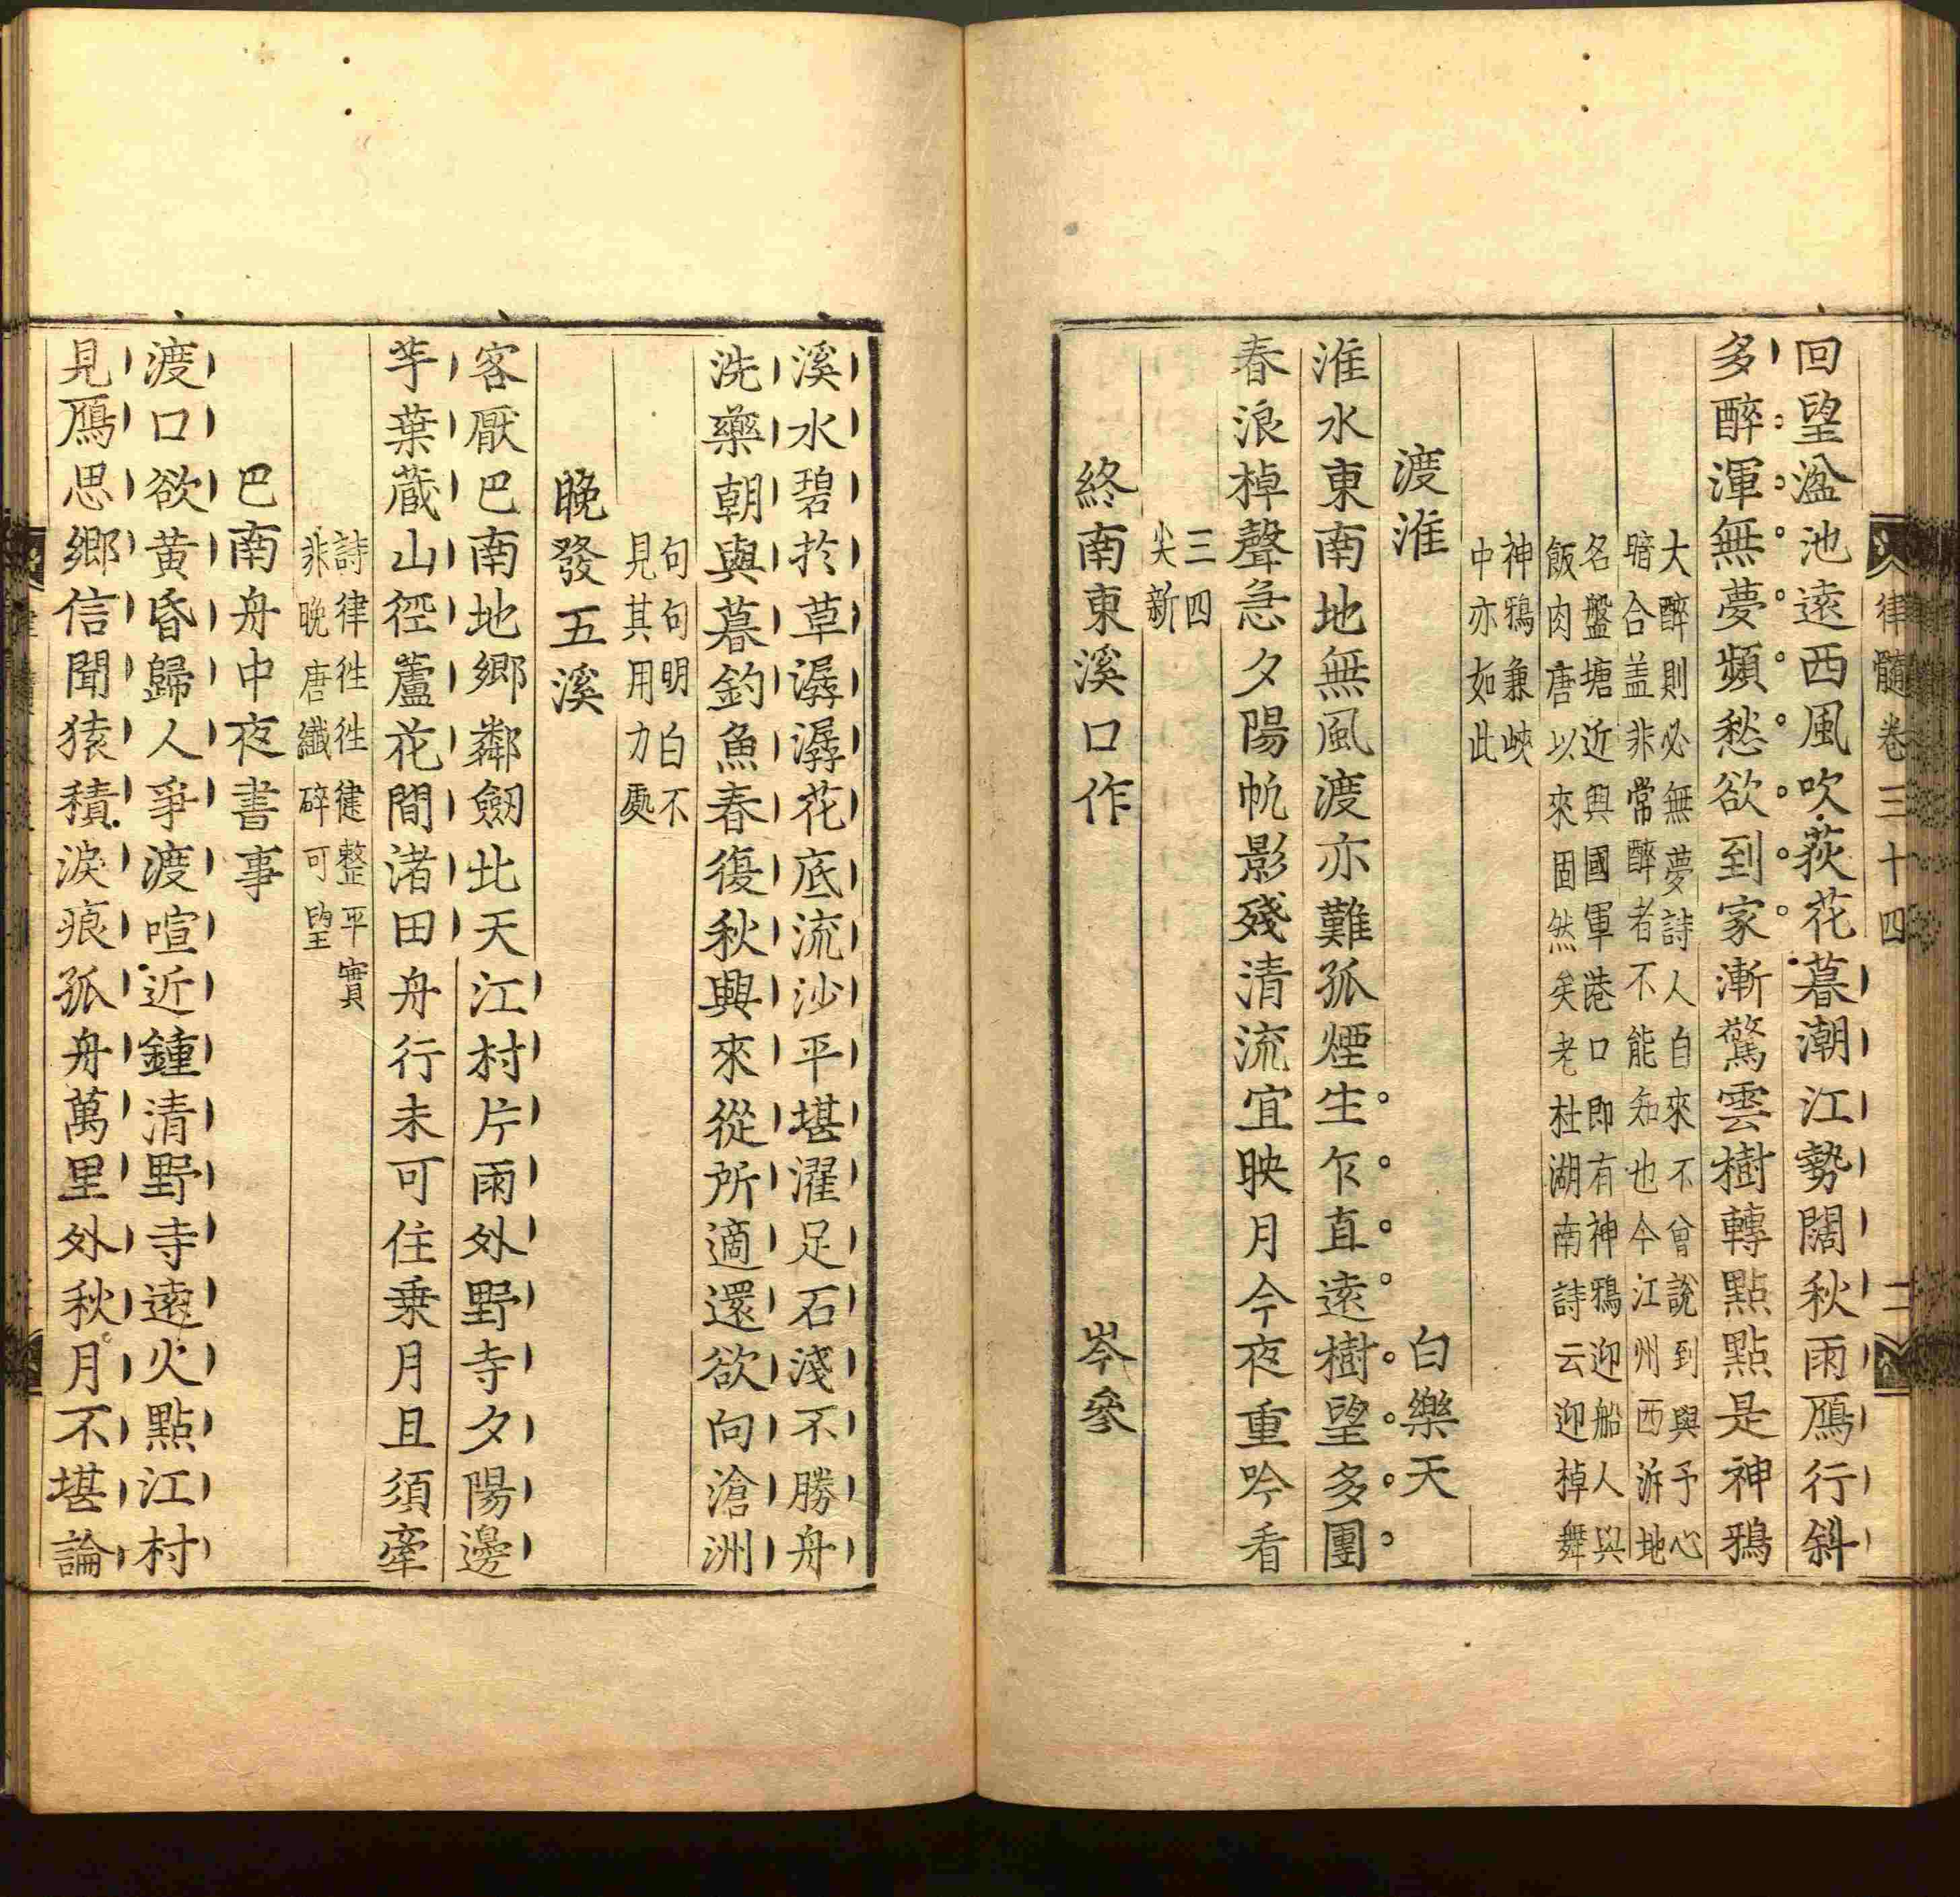 律髓卷三十四
二
回望湓池遠西風吹荻花暮潮江勢闊秋雨鴈行斜
多醉渾無夢頻愁欲到家漸驚雲樹轉點點是神鴉
大醉則必無夢詩人自來不曾說到與予心
暗合盖非常醉者不能知也今江州西泝地
名盤塘近與國軍港口即有神鴉迎船人與
飯肉唐以來固然矣老杜湖南詩云迎棹舞
神鴉兼峽
中亦如此
渡淮
白樂天
淮水東南地無風渡亦難孤煙生乍直遠樹望多團
春浪棹聲急夕陽帆影殘清流宜映月今夜重吟看
三四
尖新
終南東溪口作
岑參
溪水碧於草潺潺花底流沙平堪濯足石淺不勝舟
洗藥朝與暮釣魚春復秋興來從所適還欲向滄洲
句句明白不
見其用力處
晚發五溪
客厭巴南地鄉鄰劔北天江村片雨外野寺夕陽邊
芋葉蔵山徑蘆花間渚田舟行未可住乗月且須牽
詩律徃徃健整平實
非晚唐纖碎可望
巴南舟中夜書事
渡口欲黄昏歸人爭渡喧近鐘清野寺遠火點江村
見鴈思鄉信聞猿積淚痕孤舟萬里外秋月不堪論